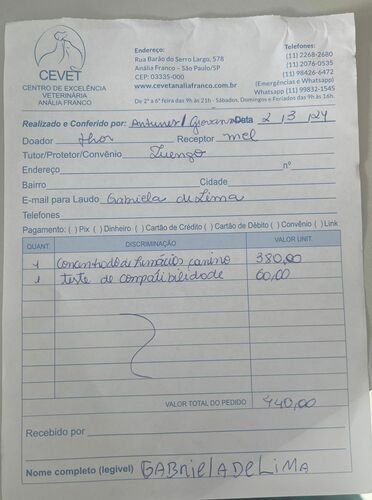 CEVET
CENTRO DE EXCELÊNCIA
VETERINÁRIA
ANÁLIA FRANCO
Endereço:
Rua Barão do Serro Largo, 578
Anália Franco – São Paulo/SP
CEP: 03335-000
www.cevetanaliafranco.com.br
Telefones:
(11) 2268-2680
(11) 2076-0535
(11) 98426-6472
(Emergências e Whatsapp)
Whatsapp (11) 99832-1545
De 2ª a 6ª feira das 9h às 21h - Sábados, Domingos e Feriados das 9h às 16h.
Realizado e Conferido por: Antunes/Giovanna Data 2/3/24
Doador thor Receptor mel
Tutor/Protetor/Convênio Luengo
Endereço nº
Bairro Cidade
E-mail para Laudo Gabriela de Lima
Telefones
Pagamento: ( ) Pix ( ) Dinheiro ( ) Cartão de Crédito ( ) Cartão de Débito ( ) Convênio ( ) Link
QUANT. DISCRIMINAÇÃO VALOR UNIT.
1 Concentrado de hemácias canino 380,00
1 teste de compatibilidade 60,00
VALOR TOTAL DO PEDIDO 440,00
Recebido por
Nome completo (legível) GABRIELA DE LIMA